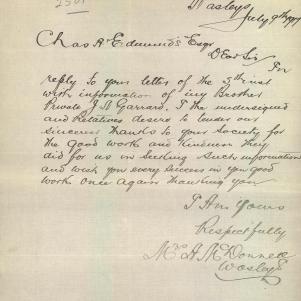 Wasleys
July 9th 1917
Chas A Edmunds Esqr
Dear Sir In
reply to your letter of the 5th inst
with information of my Brother
Private J B Garrard. I the undersigned
and Relatives desire to tender our
sincerest thanks to your Society for
the Good work and Kindness they
did for us in seeking such information
and wish you every success in your good
work Once Again thanking you
I Am Yours
Respectfully
Mrs A McDonnell
Wasleys